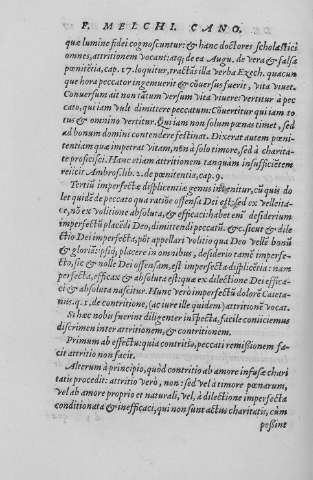 F. MELCHI. CANO.
quæ lumine fidei cognoscuntur: & hanc doctores scholastici
omnes, attritionem vocant: atq; de ea Augu. de vera & falsa
pœnitētia, cap. 17. loquitur, tractās illa verba Ezech. quacun
que hora peccator ingemuerit & cōuersus fuerit, vita viuet.
Conuersum ait non tātum versum vita viuere: vertitur à pec
cato, qui iam vult dimittere peccatum: Cōuertitur qui iam to
tus & omnino vertitur. Qui iam non solum pœnas timet, sed
ad bonum domini contendere festinat. Dixerat autem pœni-
tentiam quæ impetrat vitam, nōn à solo timore, sed à charita-
te proficisci. Hanc etiam attritionem tanquam insufficiētem
reiicit Ambros. lib. 2. de pœnitentia, cap. 9.
Tertiū imperfectæ displicentiæ genus inuenitur, cū quis do
let quidē de peccato qua ratiōe offensa Dei est, sed ex velleita-
te, nō ex volitione absoluta, & efficaci: habet em̄ desiderium
imperfectū placēdi Deo, dimittendi peccatū. & sicut & dile
ctio Dei imperfecta, pōt appellari volitio qua Deo vellē bonū
& gloriā: ipsiq; placere in omnibus, desiderio tamē imperfe-
cto, sic & nolle Dei offensam, est imperfecta displicētia: nam
perfecta, efficax & absoluta est: quæ ex dilectione Dei effica-
ci & absoluta nascitur. Hunc verò imperfectū dolorē Caieta-
nus. q. 1. de contritione, (ac iure ille quidem) attritionē vocat.
Si hæc nobis fuerint diligenter inspecta, facile coniiciemus
discrimen inter attritionem, & contritionem.
Primum ab effectu: quia contritio, peccati remissionem fa-
cit attritio non facit.
Alterum à principio, quòd contritio ab amore infusæ chari
tatis procedit: attritio verò, non: sed vel à timore pœnarum,
vel ab amore proprio et naturali, vel, à dilectione imperfecta
conditionata & inefficaci, qui non sunt actus charitatis, cùm
possint